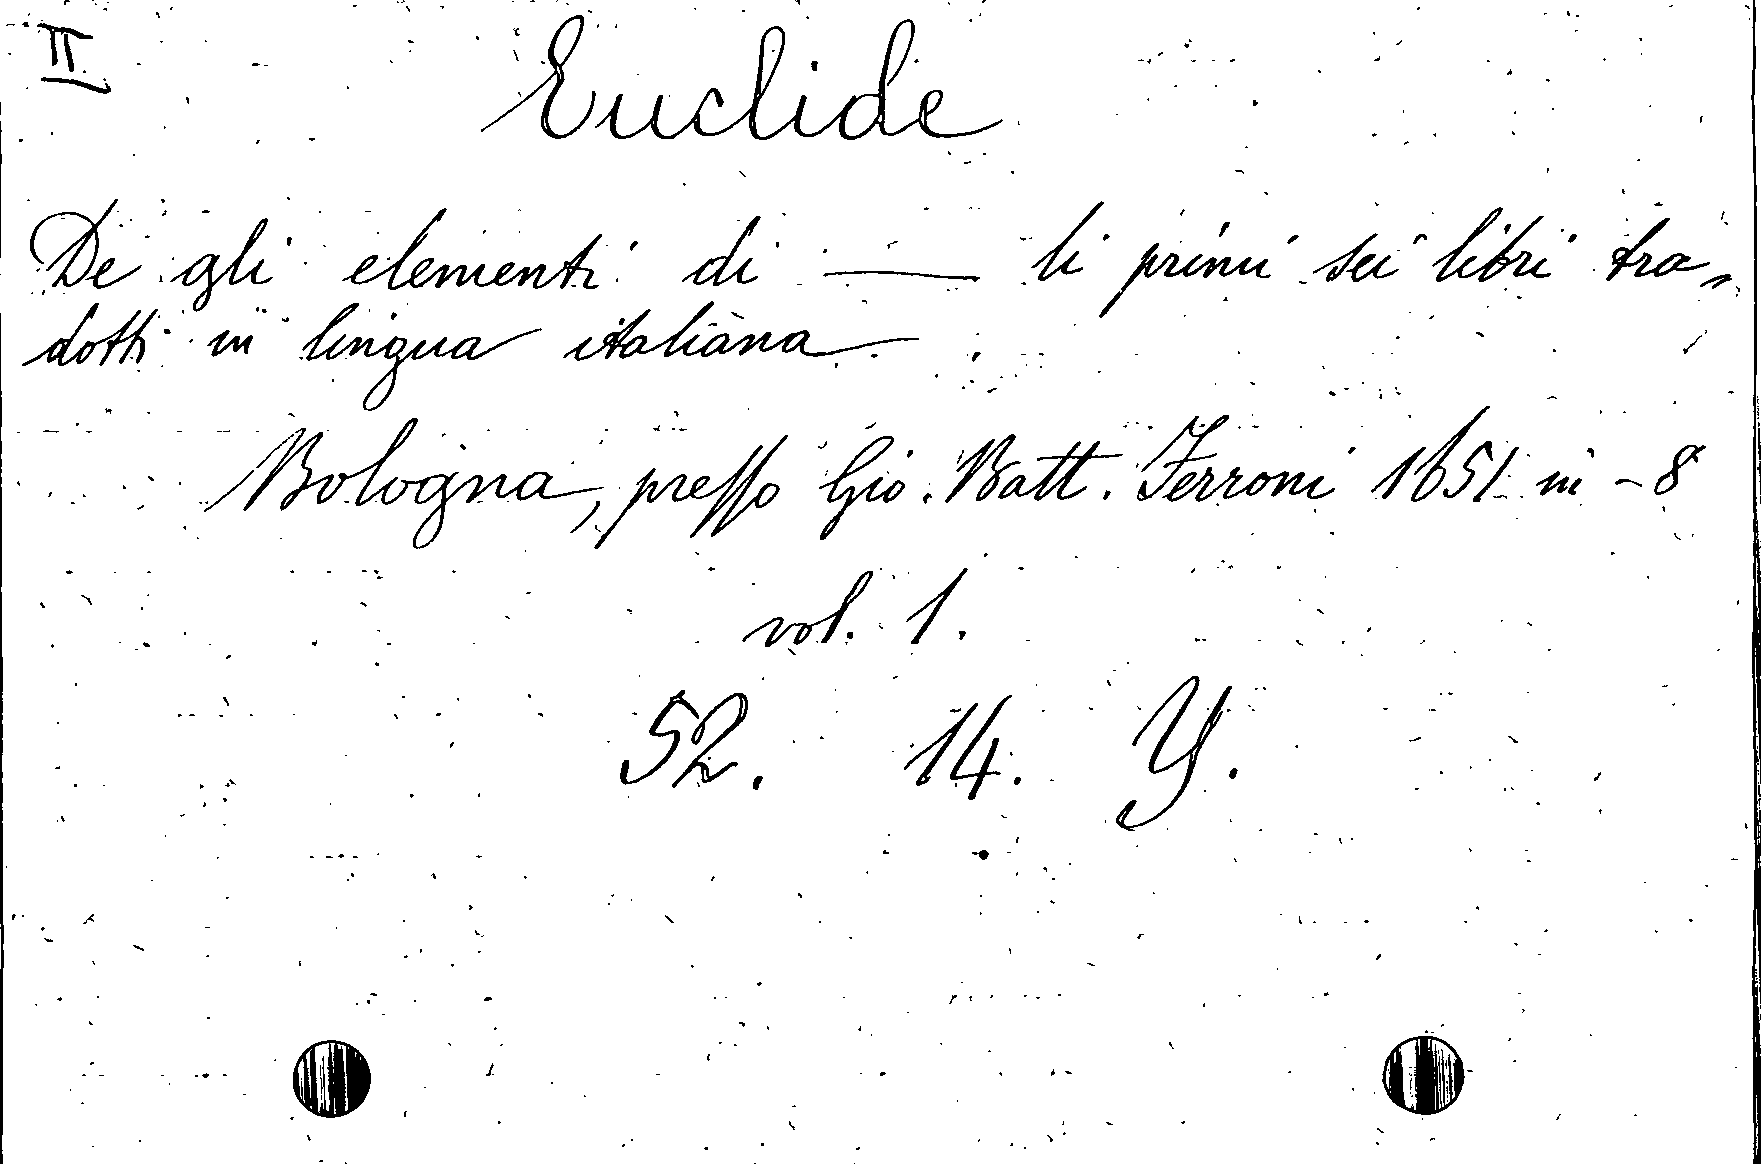 II
Euclide
De gli elementi di —— li primi sei libri tra„
dotti in lingua italiana.
Bologna, presso Gio. Batt. Ferroni 1651 in-8
vol. 1.
52. 14. Y.